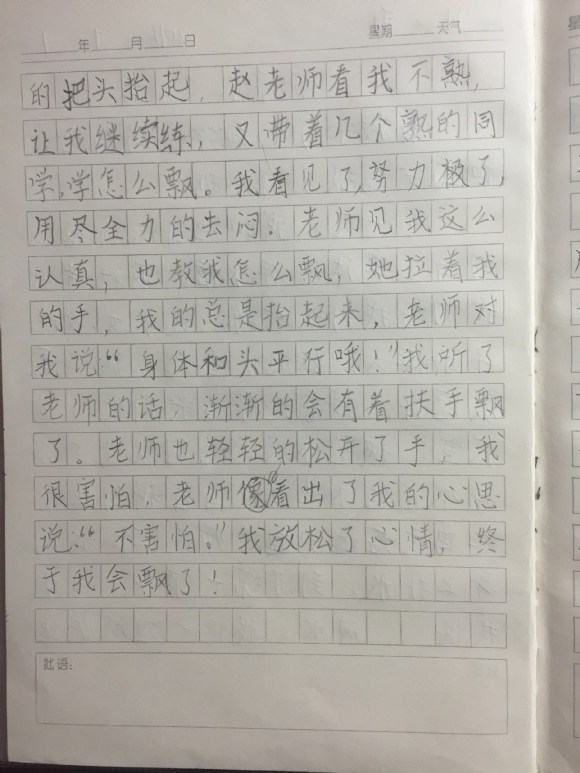 年 月 日 星期 天气
的把头抬起，赵老师看我不熟，
让我继续练，又带着几个熟的同
学，学怎么飘。我看见了，努力极了，
用尽全力的去闷。老师见我这么
认真，也教我怎么飘，她拉着我
的手，我的总是抬起来，老师对
我说：“身体和头平行哦！”我听了
老师的话，渐渐的会有着扶手飘
了。老师也轻轻的松开了手，我
很害怕，老师像看出了我的心思
说：“不害怕。”我放松了心情，终
于我会飘了！
批语：